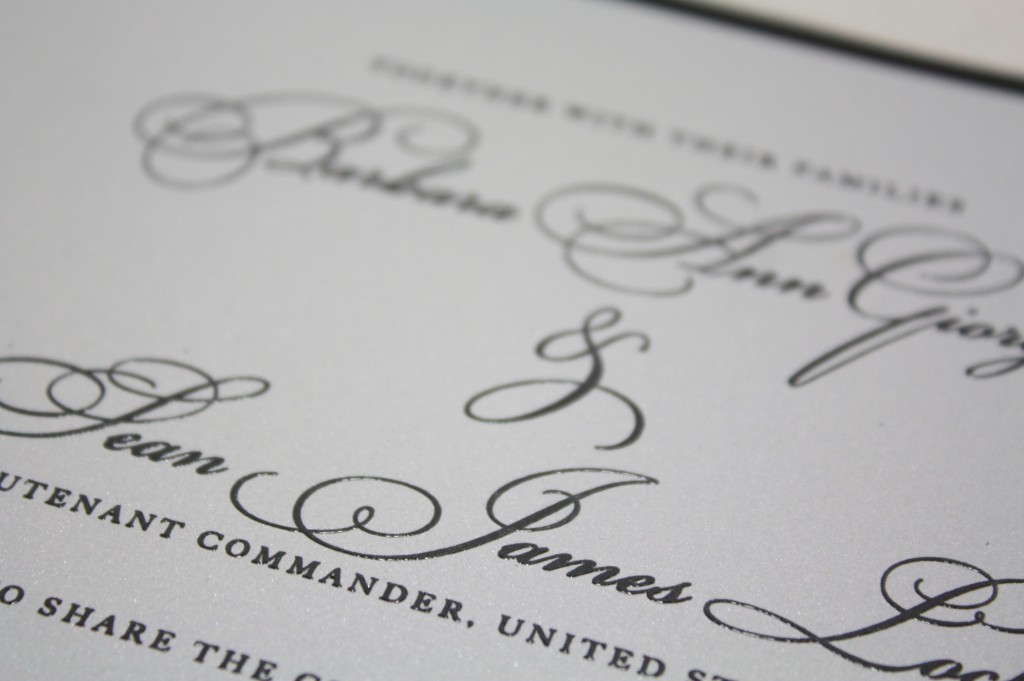 TOGETHER WITH THEIR FAMILIES
Barbara Ann Giorg
&
Sean James Loc
UTENANT COMMANDER, UNITED ST
O SHARE THE C